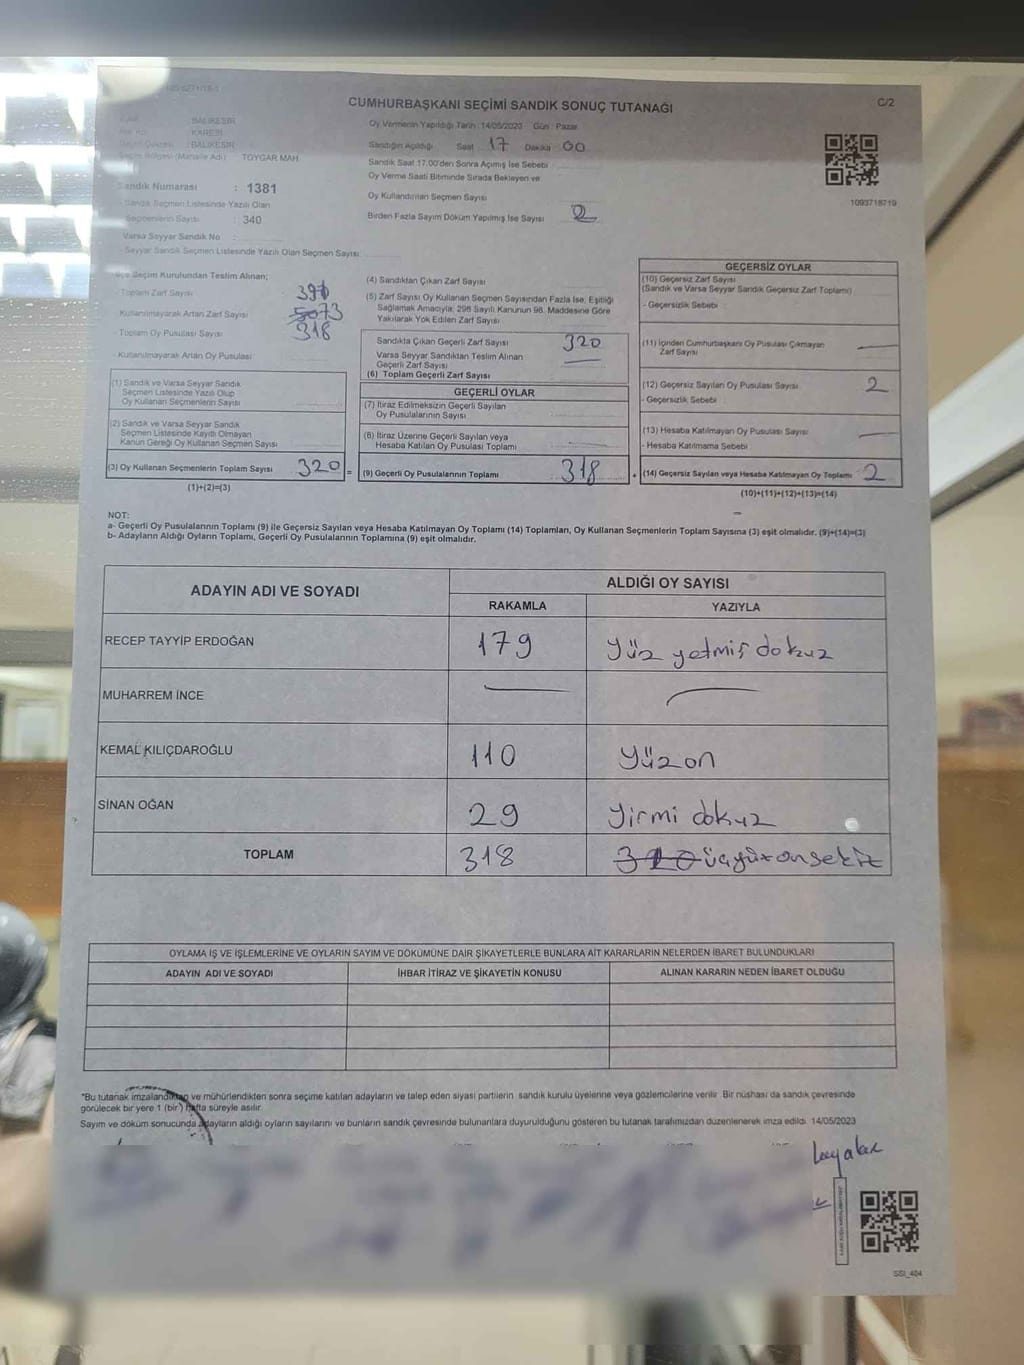 CUMHURBAŞKANI SEÇİMİ SANDIK SONUÇ TUTANAĞI
C/2
: BALIKESİR
: KARESİ
: BALIKESİR
Seçim Bölgesi (Mahalle Adı) TOYGAR MAH.
Sandık Numarası : 1381
Sandık Seçmen Listesinde Yazılı Olan
Seçmenlerin Sayısı : 340
Varsa Seyyar Sandık No :
Seyyar Sandık Seçmen Listesinde Yazılı Olan Seçmen Sayısı:
Oy Vermenin Yapıldığı Tarih :14/05/2023 Gün : Pazar
Sandığın Açıldığı Saat : 17 Dakika : 00
Sandık Saat 17.00'den Sonra Açımış İse Sebebi :
Oy Verme Saati Bitiminde Sırada Bekleyen ve
Oy Kullandırılan Seçmen Sayısı
Birden Fazla Sayım Döküm Yapılmış İse Sayısı : 2
1093718719
İlçe Seçim Kurulundan Teslim Alınan;
- Toplam Zarf Sayısı
- Kullanılmayarak Artan Zarf Sayısı
- Toplam Oy Pusulası Sayısı 318
- Kullanılmayarak Artan Oy Pusulası
(1) Sandık ve Varsa Seyyar Sandık
Seçmen Listesinde Yazılı Olup
Oy Kullanan Seçmenlerin Sayısı :
(2) Sandık ve Varsa Seyyar Sandık
Seçmen Listesinde Kayıtlı Olmayan
Kanun Gereği Oy Kullanan Seçmen Sayısı :
(3) Oy Kullanan Seçmenlerin Toplam Sayısı 320 =
(1)+(2)=(3)
(4) Sandıktan Çıkan Zarf Sayısı
(5) Zarf Sayısı Oy Kullanan Seçmen Sayısından Fazla İse, Eşitliği
Sağlamak Amacıyla; 298 Sayılı Kanunun 98. Maddesine Göre
Yakılarak Yok Edilen Zarf Sayısı
Sandıkta Çıkan Geçerli Zarf Sayısı 320
Varsa Seyyar Sandıktan Teslim Alınan
Geçerli Zarf Sayısı
(6) Toplam Geçerli Zarf Sayısı
GEÇERLİ OYLAR
(7) İtiraz Edilmeksizin Geçerli Sayılan
Oy Pusulalarının Sayısı
(8) İtiraz Üzerine Geçerli Sayılan veya
Hesaba Katılan Oy Pusulası Toplamı
(9) Geçerli Oy Pusulalarının Toplamı : 318 +
GEÇERSİZ OYLAR
(10) Geçersiz Zarf Sayısı
(Sandık ve Varsa Seyyar Sandık Geçersiz Zarf Toplamı)
- Geçersizlik Sebebi :
(11) İçinden Cumhurbaşkanı Oy Pusulası Çıkmayan
Zarf Sayısı
(12) Geçersiz Sayılan Oy Pusulası Sayısı 2
- Geçersizlik Sebebi :
(13) Hesaba Katılmayan Oy Pusulası Sayısı
- Hesaba Katılmama Sebebi :
(14) Geçersiz Sayılan veya Hesaba Katılmayan Oy Toplamı : 2
(10)+(11)+(12)+(13)=(14)
NOT:
a- Geçerli Oy Pusulalarının Toplamı (9) ile Geçersiz Sayılan veya Hesaba Katılmayan Oy Toplamı (14) Toplamları, Oy Kullanan Seçmenlerin Toplam Sayısına (3) eşit olmalıdır. (9)+(14)=(3)
b- Adayların Aldığı Oyların Toplamı, Geçerli Oy Pusulalarının Toplamına (9) eşit olmalıdır.
ADAYIN ADI VE SOYADI ALDIĞI OY SAYISI
RAKAMLA YAZIYLA
RECEP TAYYİP ERDOĞAN 179 Yüz yetmiş dokuz
MUHARREM İNCE
KEMAL KILIÇDAROĞLU 110 Yüzon
SİNAN OĞAN 29 Yirmi dokuz
TOPLAM 318 320 üçyüzonsekiz
OYLAMA İŞ VE İŞLEMLERİNE VE OYLARIN SAYIM VE DÖKÜMÜNE DAİR ŞİKAYETLERLE BUNLARA AİT KARARLARIN NELERDEN İBARET BULUNDUKLARI
ADAYIN ADI VE SOYADI İHBAR İTİRAZ VE ŞİKAYETİN KONUSU ALINAN KARARIN NEDEN İBARET OLDUĞU
*Bu tutanak imzalandıktan ve mühürlendikten sonra seçime katılan adayların ve talep eden siyasi partilerin sandık kurulu üyelerine veya gözlemcilerine verilir. Bir nüshası da sandık çevresinde
görülecek bir yere 1 (bir) hafta süreyle asılır.
Sayım ve döküm sonucunda adayların aldığı oyların sayılarını ve bunların sandık çevresinde bulunanlara duyurulduğunu gösteren bu tutanak tarafımızdan düzenlenerek imza edildi. 14/05/2023
SSI_404